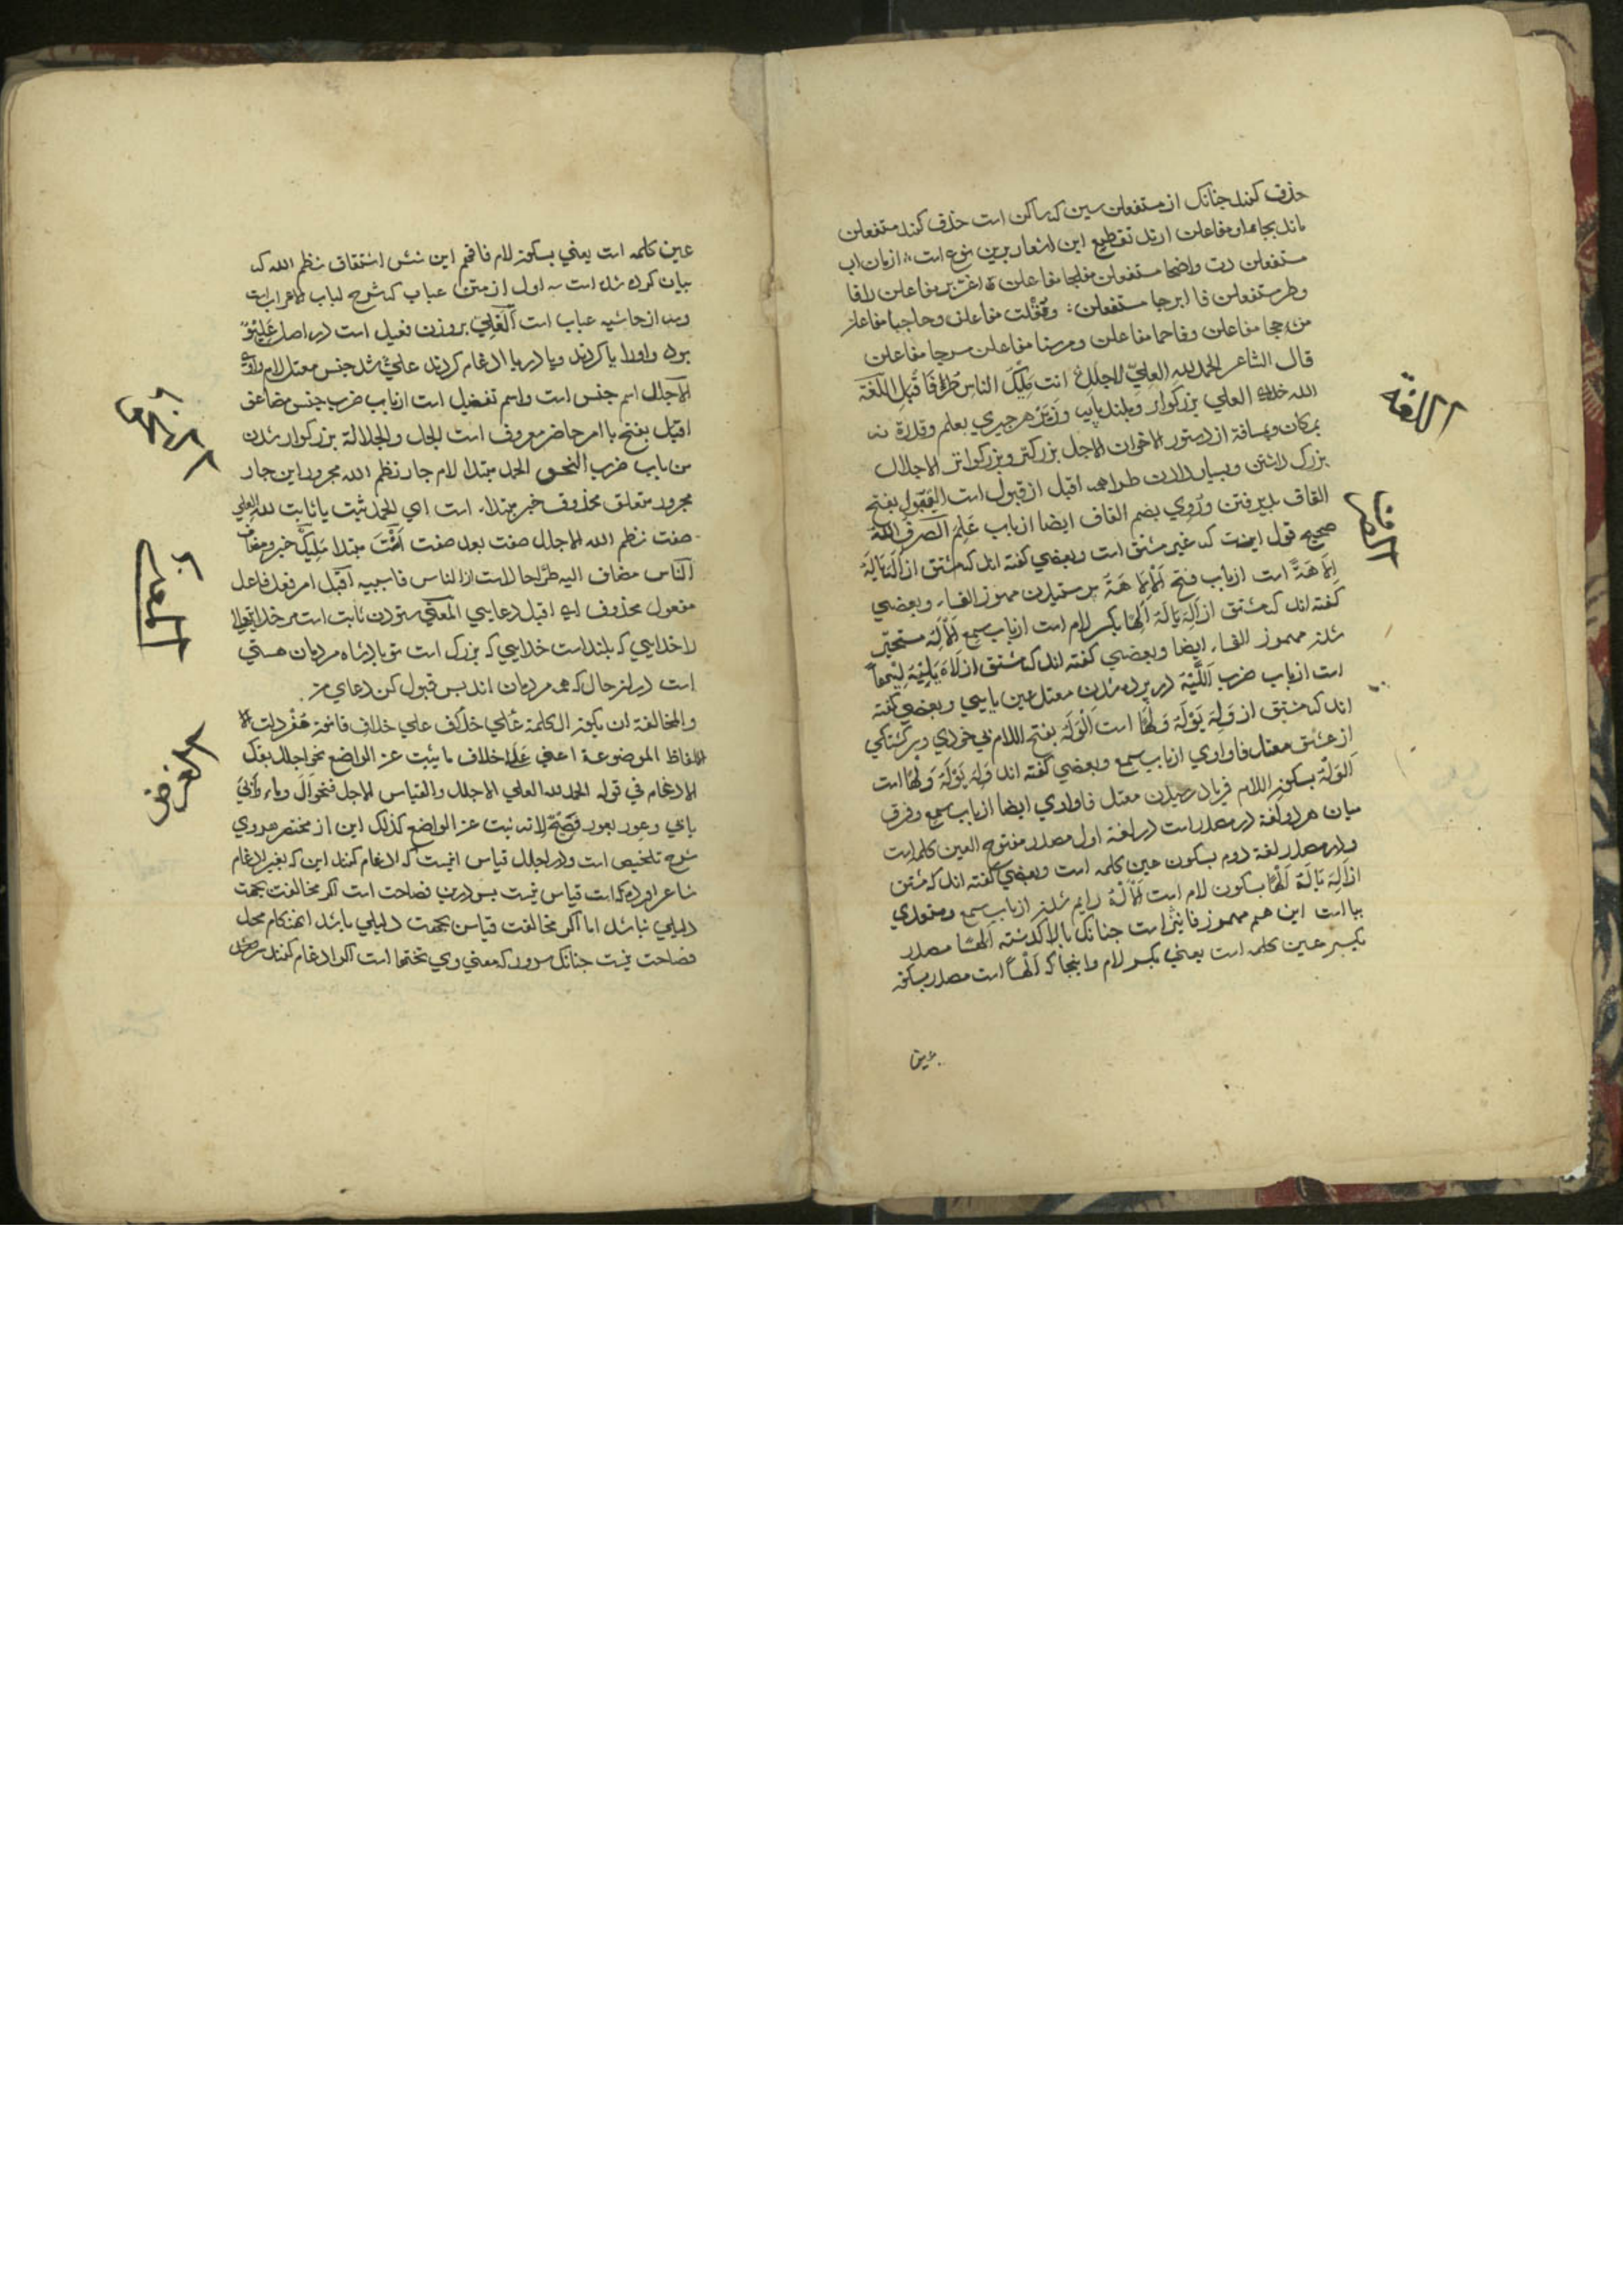 حذف کنند جنانک از مستفعلن سین که ساکن است حذف کنند متفعلن
ماند بجاء او مفاعلن ارند تقطیع این اشعار برین نوع است
مستفعلن دت واضحا مستفعلن مفلجا مفاعلن اغرّ بر مفاعلن راقا
وطر مستفعلن فا ابرجا مستفعلن ومقلت مفاعلن وحاجبا مفاعلن
من ججا مفاعلن وفاحما مفاعلن ومرسنا مفاعلن مسرجا مفاعلن
قال الشاعر الحمد لله العلیّ الاجلل انت ملیک الناس طرّا فاقبل اللغة
الله خدای العلی بزرکوار وبلند پایه وزبر هر جیزی بعلم وقدرة نه
بمکان وبمسافة از دستور الاخوان الاجل بزرکتر وبزرکوارتر الاجلال
بزرک داشتن وبسیار دادن طرا همه اقبل از قبول است القبول بفتح
القاف بذیرفتن وروی بضم القاف ایضا از باب علم الصرف الله
صحیح قول اینست که غیر مشتق است وبعضی کفته اند که مشتق از اله یاله
الاهة است از باب فتح الالاهة برستیدن مهموز الفاء وبعضی
کفته اند که مشتق از اله یاله الها بکسر لام است از باب سمع الاله متحیر
شدن مهموز الفاء ایضا وبعضی کفته اند که مشتق از لاه یلیه لیها
است از باب ضرب اللیه در برده شدن معتل عین یایی وبعضی کفته
اند که مشتق از وله یوله ولها است الوله بفتح اللام بی خودی وسر کشتکی
از عشق معتل فا واوی از باب سمع وبعضی کفته اند وله یوله ولها است
الوله بسکون اللام فریاد رسیدن معتل فاواوی ایضا از باب سمع وفرق
میان هر دو لغة در مصدر است در لغة اول مصدر مفتوح العین کلمه است
ودر مصدر لغة دوم بسکون عین کلمه است وبعضی کفته اند که مشتق
از اله یاله الها بسکون لام است الالة دایم شدن از باب سمع ومتعدی
ببا است این هم مهموز فا نیز است جنانک بالا کذشته الها مصدر
بکسر عین کلمه است یعنی بکسر لام واینجا که الها است مصدر بسکون
عین
اللغة
الصرف
عین کلمه است یعنی بسکون لام فافهم این شش اشتقاق نظم الله که
بیان کرده شده است سه اول از متن عباب که شرح لباب الاعراب است
وسه از حاشیه عباب است العلی بر وزن فعیل است در اصل علیو
بود واو را یا کردند ویا در یا ادغام کردند علیّ شد جنس معتل لام واوی
الاجلل اسم جنس است واسم تفضیل است از باب ضرب جنس مضاعف
اقبل بفتح با امر حاضر معروف است الجل والجلالة بزرکوار شدن
من باب ضرب النحو الحمد مبتدا لام جار نظم الله مجرور این جار
مجرور متعلق محذوف خبر مبتداء است ای الحمد ثبت یا ثابت لله العلی
صفت نظم الله الاجلل صفت بعد صفت انت مبتدا ملیک خبر ومضاف
الناس مضاف الیه طرّا حال است از الناس فا سببیه اقبل امر فعل فاعل
مفعول محذوف ای اقبل دعایی المعنی ستودن ثابت است مر خدایتعالی
را خدایی که بلند است خدایی که بزرک است تو پادشاه مردمان هستی
است در آن حال که همه مردمان اند بس قبول کن دعای من
والمخالفة ان یکون الکلمة علی خلاف قانون مفردات
الالفاظ الموضوعة اعنی علی خلاف ما یثبت عن الواضع نحو اجلل بفک
الادغام فی قوله الحمد لله العلی الاجلل والقیاس الاجل فنحو آل وماء وابی
یابی وعور یعور فصیح لانه ثبت عن الواضع کذلک این از مختصر هروی
شرح تلخیص است ودر اجلل قیاس اینست که ادغام کنند این که بغیر ادغام
شاعر آورده که است قیاس نیست بس درین فصاحت است اکر مخالفت بجهت
دلیلی نباشد اما اکر مخالفت قیاس بجهت دلیلی باشد آن هنکام مخل
فصاحت نیست جنانک سرر که معنی وی تختها است اکر ادغام کنند
النحو
المعنی
الغرض